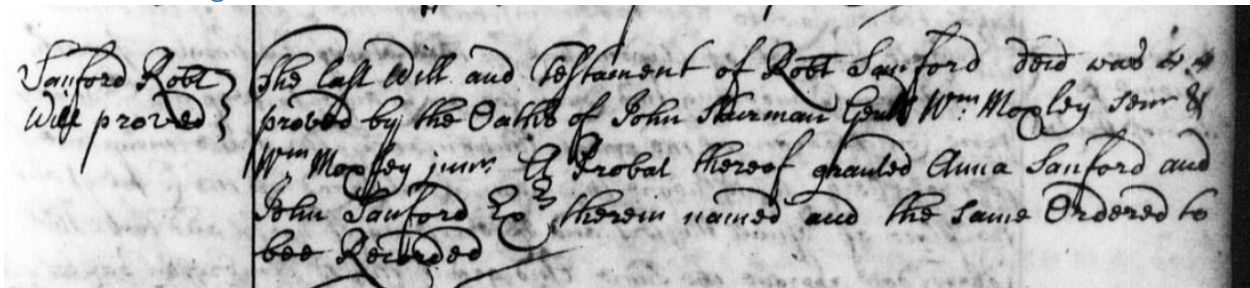 Sanford Robt
Will proved
The last Will and Testament of Robt Sanford decd was
proved by the Oaths of John Gentl Wm: Moxley senr &
Wm Moxley junr. & Probat thereof granted Anna Sanford and
John Sanford Exrs therein named and the same Ordered to
bee Recorded